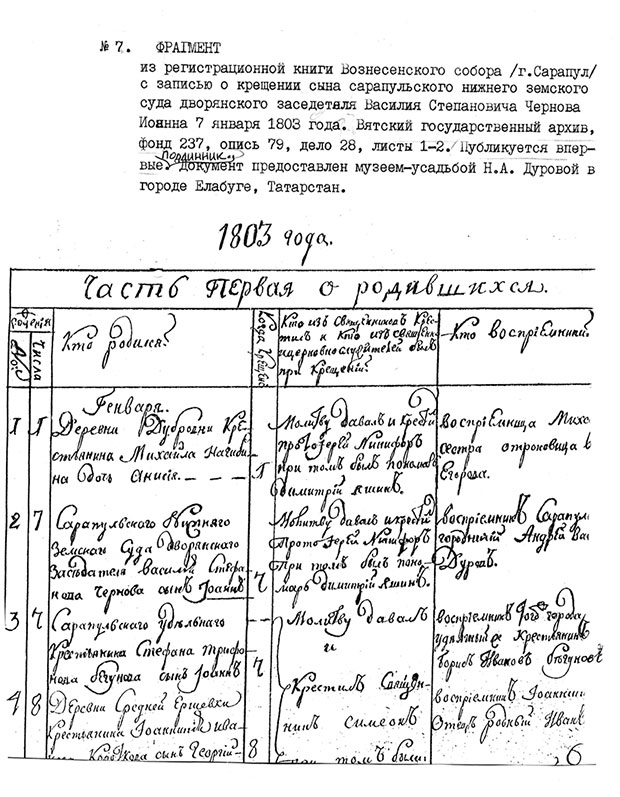 № 7. ФРАГМЕНТ
из регистрационной книги Вознесенского собора /г.Сарапул/
с записью о крещении сына сарапульского нижнего земского
суда дворянского заседетяля Василия Степановича Чернова
Иоанна 7 января 1803 года. Вятский государственный архив,
фонд 237, опись 79, дело 28, листы 1-2. Публикуется впер-
подлинник
вые. Документ предоставлен музеем-усадьбой Н.А. Дуровой в
городе Елабуге, Татарстан.
1803 года.
Часть первая о родившихся.
Числа
Кто родился.
Когда крещенъ
Кто изъ священниковъ кре-
стилъ и кто изъ священно
ицерковнослужителей былъ
при крещении.
Кто воспрiемники
Генваря.
1 1 Деревни Дубровки Кре-
стьянина Михайла
на дочь Анисiя.
1
Молитву давалъ и крестилъ
протоiерей Никифоръ
при томъ былъ пономарь
Димитрiй Яшинъ.
воспрiемница
сестра отроковица
Егорова.
2 7 Сарапульского Нижняго
Земскаго Суда Дворянскаго
Заседателя Василiя Степа-
нова Чернова сынъ Iоаннъ
7
Молитву давалъ икрестилъ
Протоiерей Никифоръ
При томъ былъ поно-
марь Димитрiй Яшинъ.
воспрiемникъ Сарапул
городничiй Андрей Ва
Дуровъ.
3 7 Сарапульскаго удельнаго
Крестьянина Стефана Трифо-
нова Бегунова сынъ Iоаннъ
7
Молитву давалъ
и
воспрiемникъ того города
удельный Крестьянинъ
Борисъ Ивановъ Бегуновъ
4 8 Деревни Средней Ершевки
Крестьянина Iоанна Ива-
сынъ Георгiй
8
Крестилъ Священ-
никъ Симеонъ
при томъ были
воспрiемникъ
6